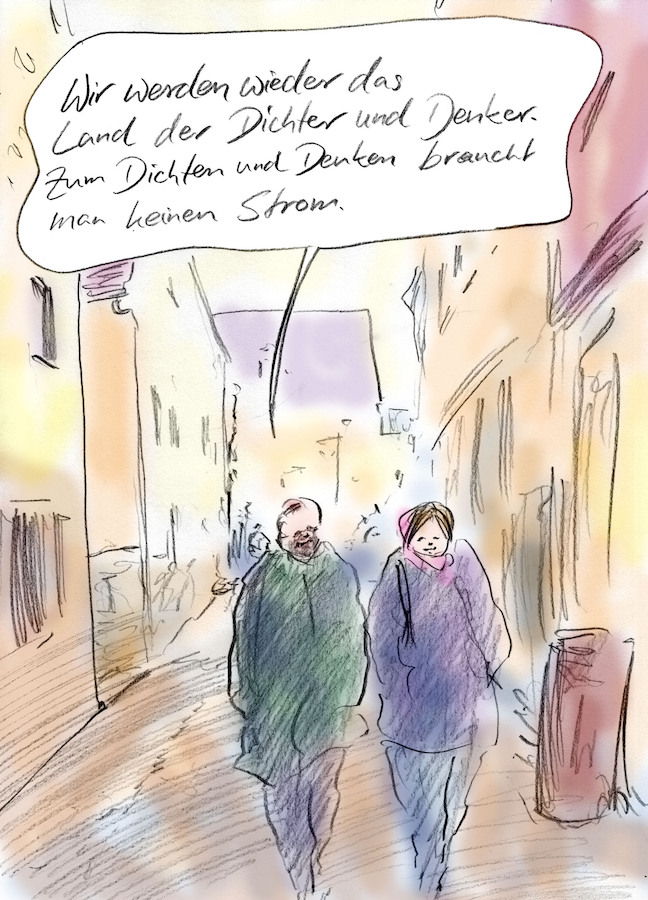 Wir werden wieder das
Land der Dichter und Denker.
Zum Dichten und Denken braucht
man keinen Strom.